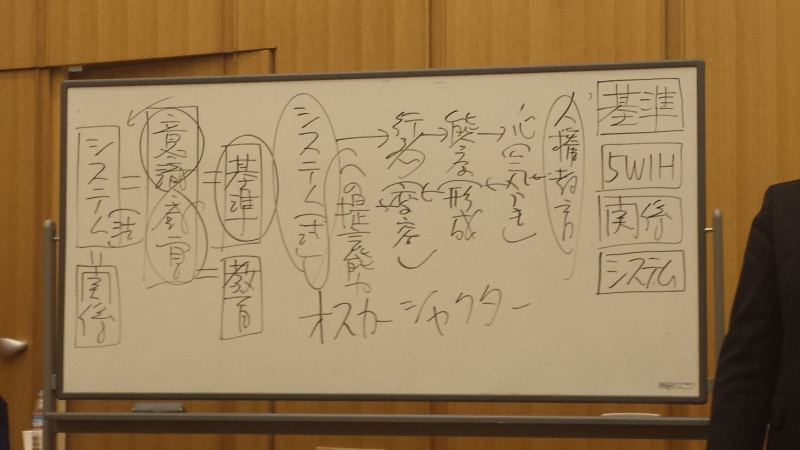 基準
5W1H
関係
システム
人権教育
心(気づき)
態度形成
行為(変容)
への提言能力
システム(法)
基準
教育
意識
教育
システム(法)
関係
オスカー シャクター